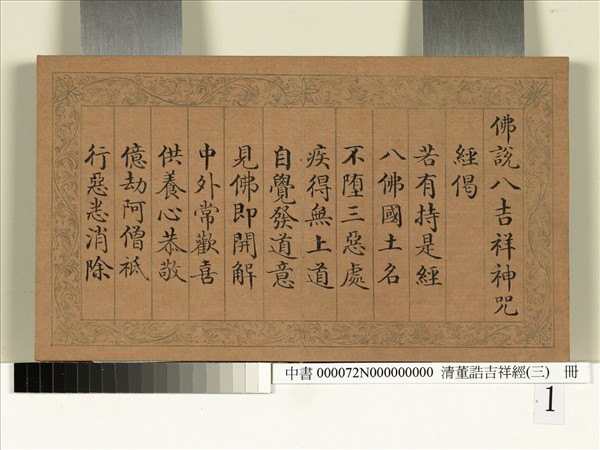 佛說八吉祥神咒
經偈
若有持是經
八佛國土名
不堕三惡處
疾得無上道
自覺發道意
見佛即開解
中外常歡喜
供養心恭敬
億劫阿僧祇
行惡悉消除
中書 000072N000000000 清董誥吉祥經(三) 冊
1